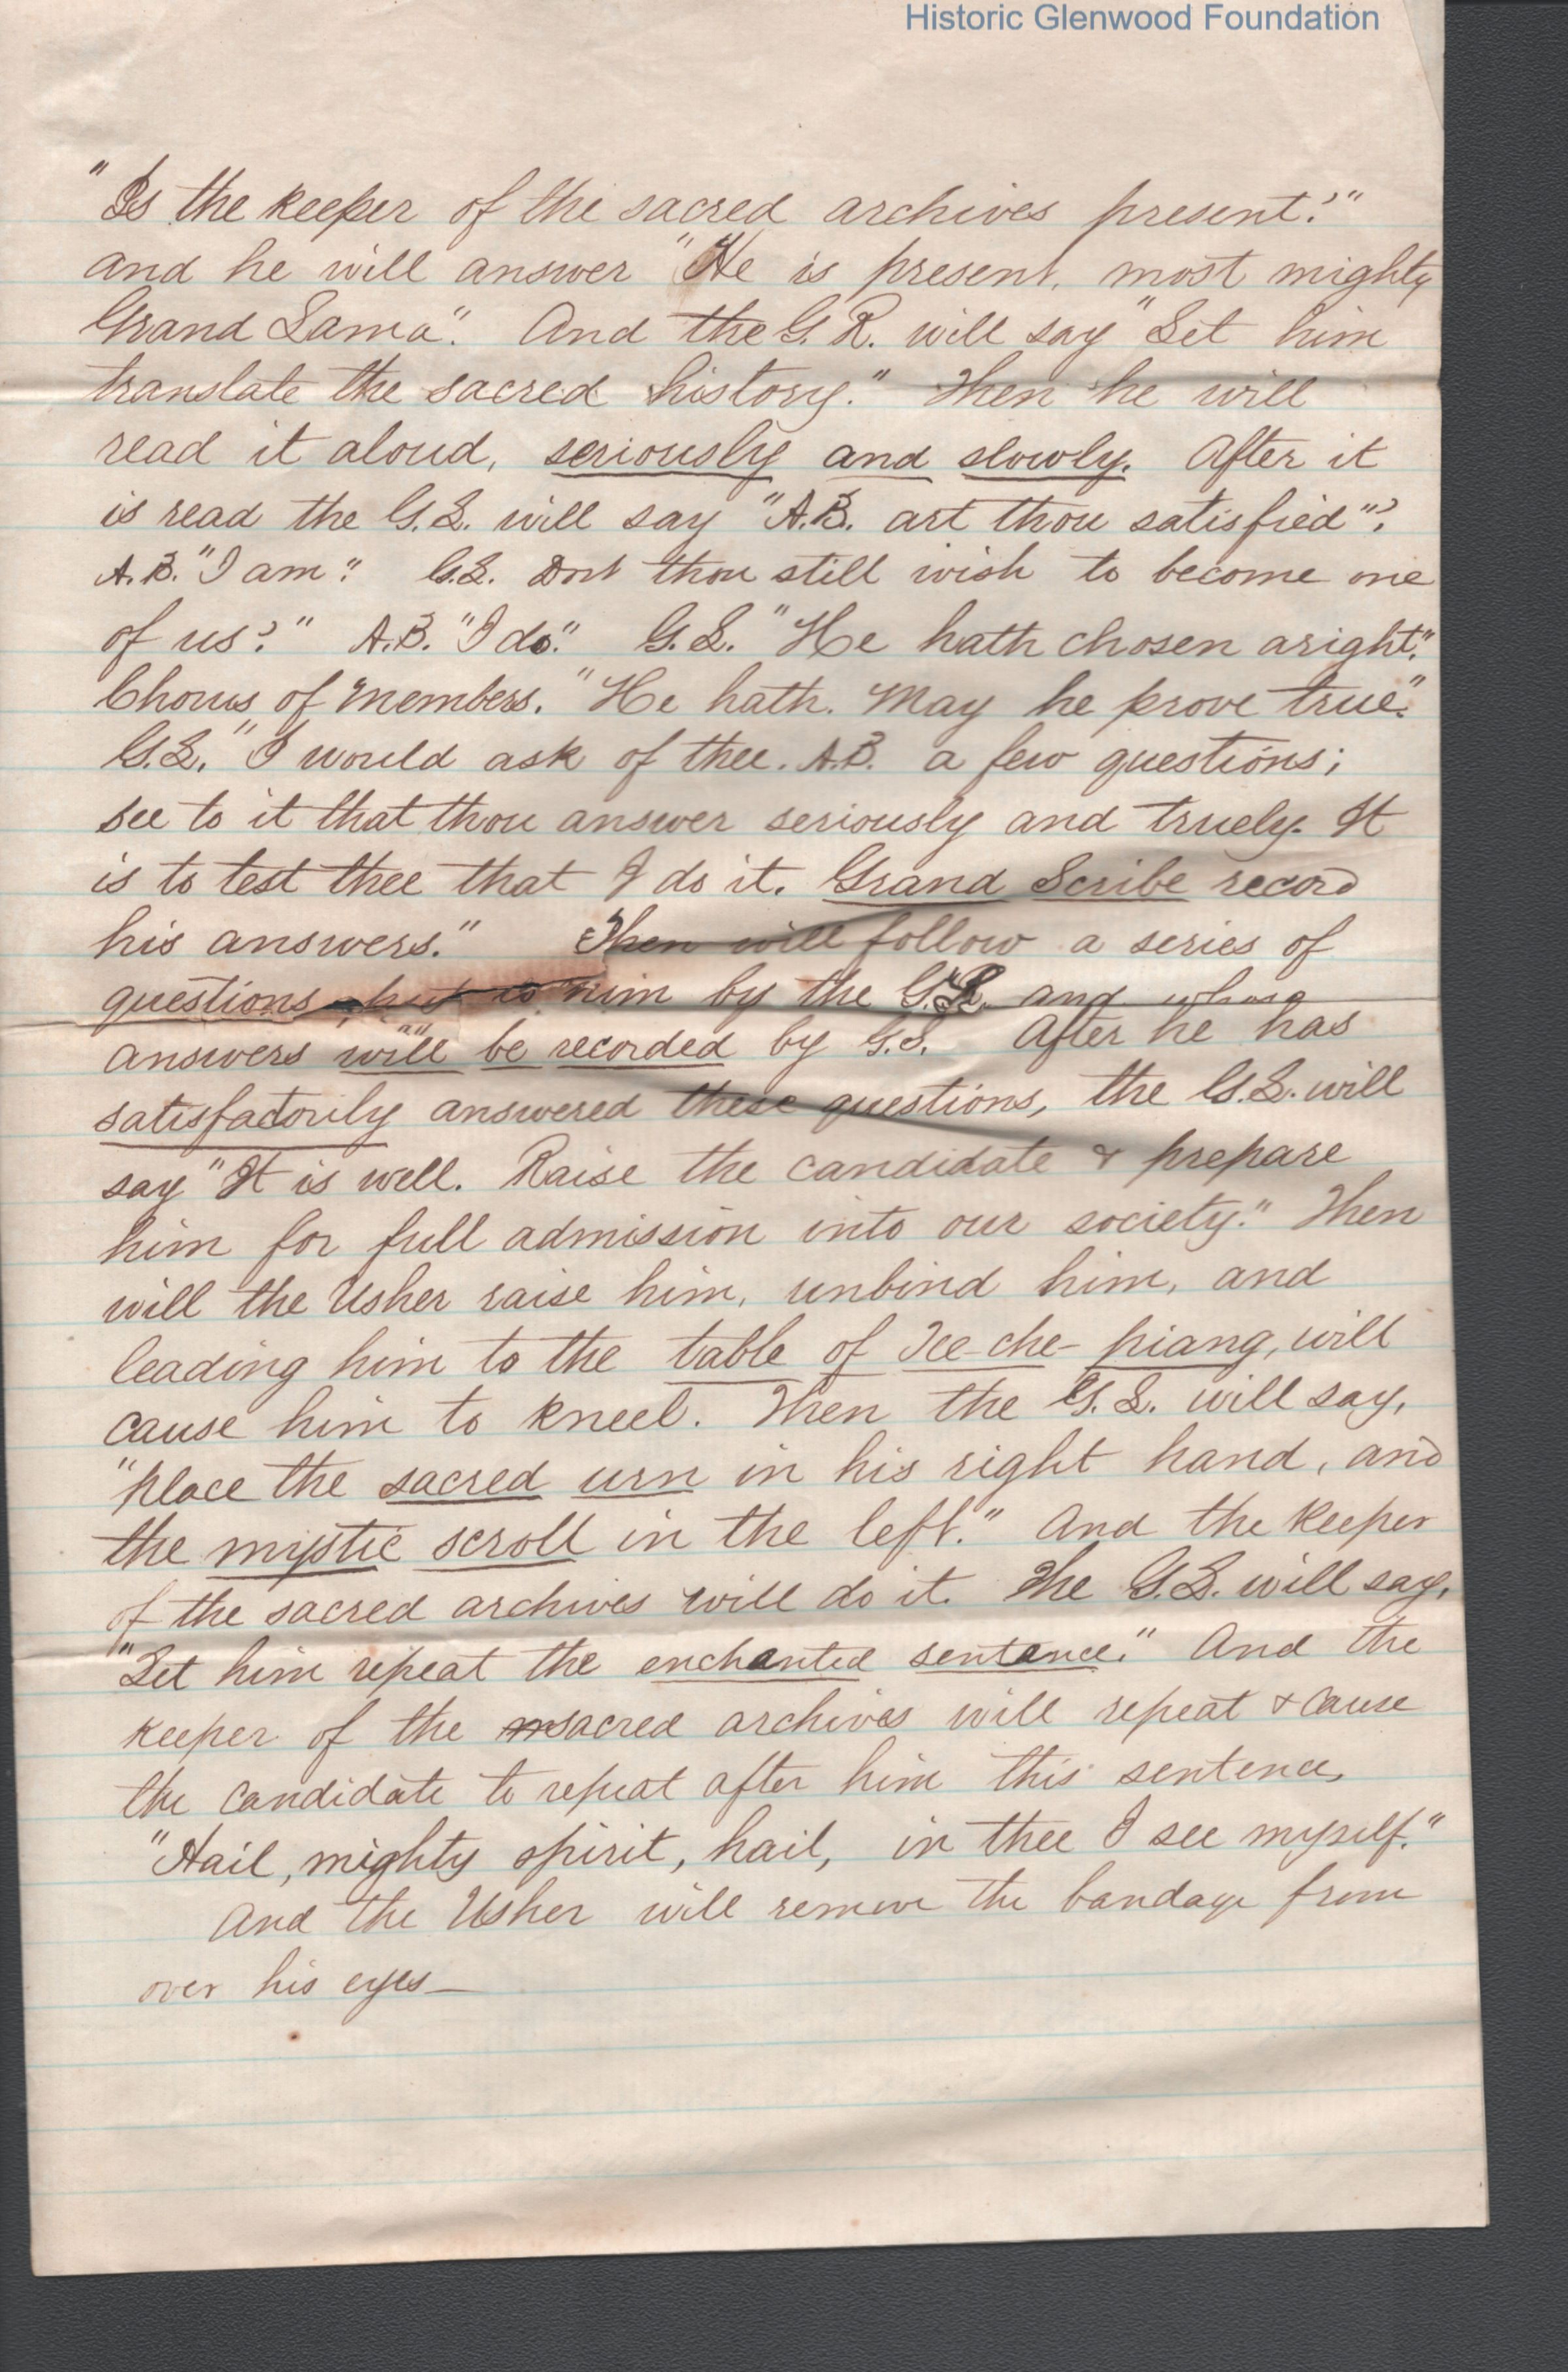 Historic Glenwood Foundation
"Is the keeper of the sacred archives present?"
and he will answer "He is present, most mighty
Grand Lama". And the G. R. will say "Let him
translate the sacred history." Then he will
read it aloud, seriously and slowly. After it
is read the G.L. will say "A.B. art thou satisfied"?
A.B. "I am". G.L. Dost thou still wish to become one
of us?" A.B. "I do". G.L. "He hath chosen aright."
Chorus of members. "He hath. May he prove true."
G.L. "I would ask of thee. A.B. a few questions;
see to it that thou answer seriously and truely. It
is to test thee that I do it. Grand Scribe record
his answers." Then will follow a series of
questions put to him by the G.R. and whose
answers will be recorded by G.S. After he has
satisfactorily answered these questions, the G.L. will
say "It is well. Raise the candidate & prepare
him for full admission into our society." Then
will the Usher raise him, unbind him, and
leading him to the table of Tee-che-piang, will
cause him to kneel. Then the G.L. will say,
"place the sacred urn in his right hand, and
the mystic scroll in the left." And the Keeper
of the sacred archives will do it. The G.L. will say,
"Let him repeat the enchanted sentence." And the
keeper of the sacred archives will repeat & cause
the candidate to repeat after him this sentence,
"Hail, mighty spirit, hail, in thee I see myself."
And the Usher will remove the bandage from
over his eyes—